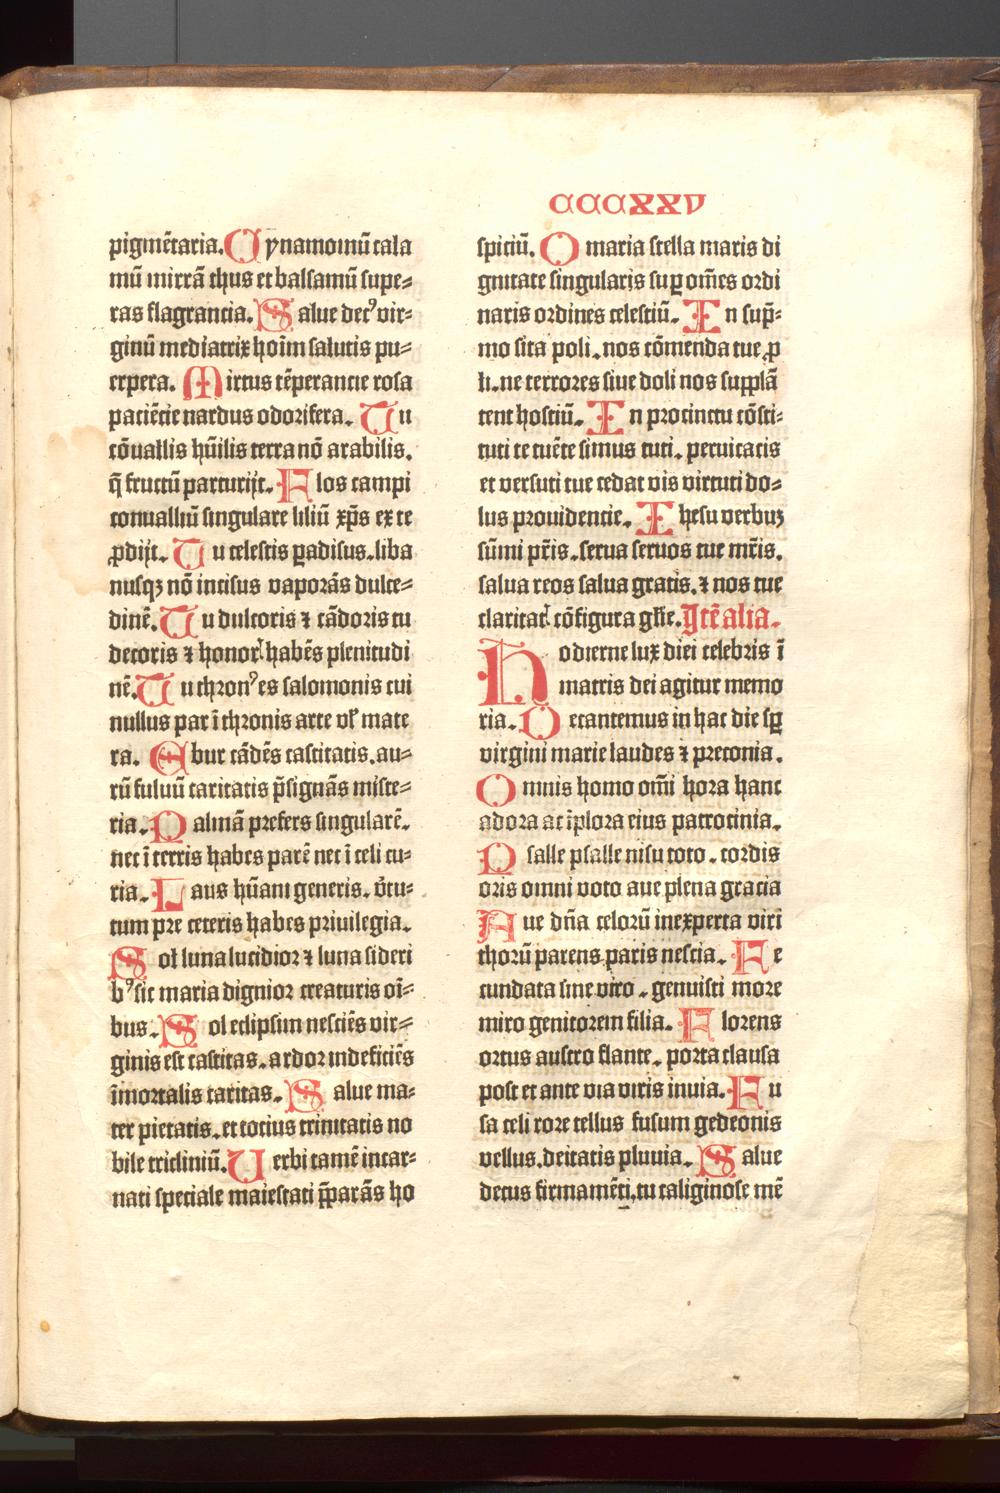 CCCXXV
pigmētaria. Cynamomū cala
mū mirrā thus et balsamū supe⸗
ras flagrancia. Salue decꝰ vir⸗
ginū mediatrix hoīm salutis pu⸗
erpera. Mirtus tēperancie rosa
paciēcie nardus odorifera. Tu
cōuallis hūilis terra nō arabilis.
q̄ fructū parturijt. Flos campi
conualliū singulare liliū xp̄s ex te
ꝓdijt. Tu celestis ꝑadisus. liba
nusqꝫ nō incisus vaporās dulce⸗
dinē. Tu dulcoris ⁊ cādoris tu
decoris ⁊ honorꝭ habēs plenitudi
nē. Tu thronꝰ es salomonis cui
nullus par ī thronis arte vel̕ mate
ra. Ebur cādēs castitatis. au⸗
rū fuluū caritatis p̄signās miste⸗
ria. Palmā prefers singularē.
nec ī terris habes parē nec ī celi cu⸗
ria. Laus hūani generis. v̄tu⸗
tum pre ceteris habes priuilegia.
Sol luna lucidior ⁊ luna sideri
bꝰ sic maria dignior creaturis oī⸗
bus. Sol eclipsim nesciēs vir⸗
ginis est castitas. ardor indeficiēs
īmortalis caritas. Salue ma⸗
ter pietatis. et tocius trinitatis no
bile tricliniū. Verbi tamē incar⸗
nati speciale maiestati p̄parās ho
spiciū. O maria stella maris di
gnitate singularis suꝑ om̄es ordi
naris ordines celestiū. In sup̄⸗
mo sita poli. nos cōmenda tue ꝓ
li. ne terrores siue doli nos supplā
tent hostiū. In procinctu cōsti⸗
tuti te tuēte simus tuti. peruicacis
et versuti tue cedat vis virtuti do⸗
lus prouidencie. Ihesu verbuꝫ
sūmi pr̄is. serua seruos tue mr̄is.
salua reos salua gratis. ⁊ nos tue
claritatꝭ cōfigura gl̄ie. Itē alia.
Hodierne lux diei celebris ī
matris dei agitur memo
ria. Decantemus in hac die sꝑ
virgini marie laudes ⁊ preconia.
Omnis homo om̄i hora hanc
adora ac īplora eius patrocinia.
Psalle psalle nisu toto. cordis
oris omni voto aue plena gracia
Aue dn̄a celorū inexperta viri
thorū parens paris nescia. Fe
cundata sine viro. genuisti more
miro genitorem filia. Florens
ortus austro flante. porta clausa
post et ante via viris inuia. Fu
sa celi rore tellus fusum gedeonis
vellus. deitatis pluuia. Salue
decus firmamēti. tu caliginose mē